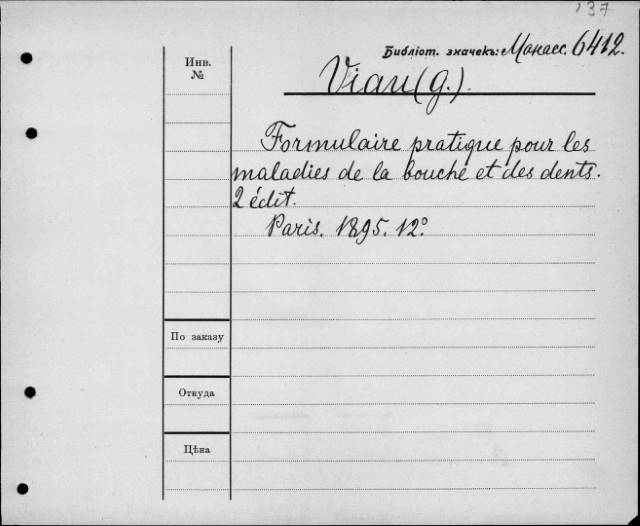 137
Библіот. значекъ: Манасс. 6412.
Инв. №
Viau (G.).
Formulaire pratique pour les
maladies de la bouche et des dents.
2 édit.
Paris. 1895. 12º
По заказу
Откуда
Цѣна